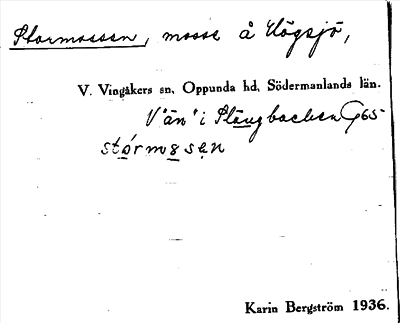 Stormossen, mosse å Högsjö,
V. Vingåkers sn, Oppunda hd, Södermanlands län.
V "än" i Stängbacken G65
stórmosen
Karin Bergström 1936.